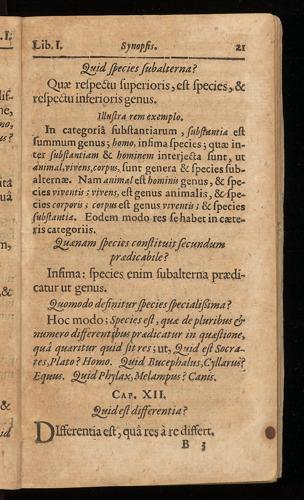 Lib. I. Synopsis. 21
Quid species subalterna?
Quæ respectu superioris, est species, &
respectu inferioris genus.
Illustra rem exemplo.
In categoriâ substantiarum, substantia est
summum genus; homo, infima species; quæ in-
ter substantiam & hominem interjecta sunt, ut
animal, vivens, corpus, sunt genera & species sub-
alternæ. Nam animal est hominis genus, & spe-
cies viventis; vivens, est genus animalis, & spe-
cies corporis; corpus est genus viventis; & species
substantia. Eodem modo res se habet in cæte-
ris categoriis.
Quænam species constituit secundum
prædicabile?
Infima: species enim subalterna prædi-
catur ut genus.
Quomodo definitur species specialissima?
Hoc modo; Species est, quæ de pluribus &
numero differentibus prædicatur in quæstione,
quâ quæritur quid sit res; ut, Quid est Socra-
tes, Plato? Homo. Quid Bucephalus, Cyllarus?
Equus. Quid Phylax, Melampus? Canis.
CAP. XII.
Quid est differentia?
DIfferentia est, quâ res à re differt.
B 3